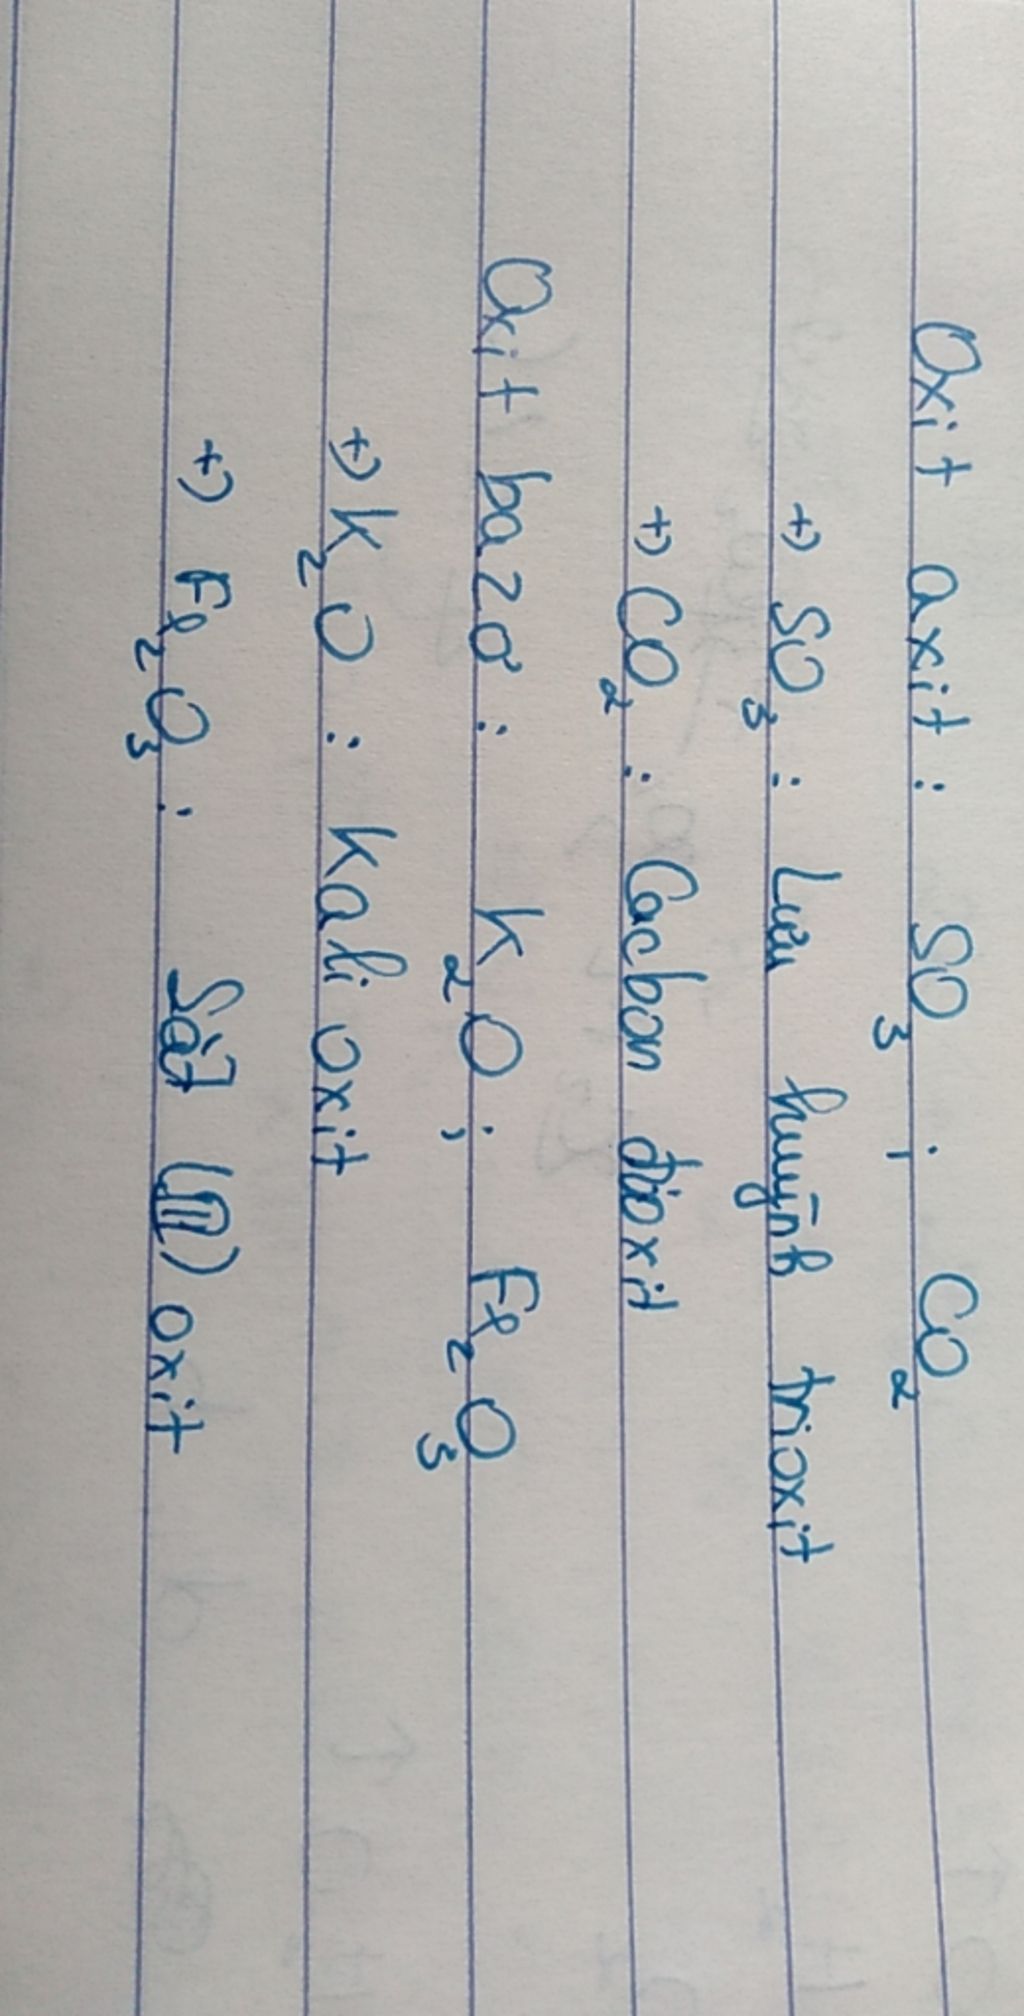 Oxit axit : SO3 ; CO2
+) SO3 : Lưu huỳnh trioxit
+) CO2 : Cacbon đioxit
Oxit bazơ : K2O ; Fe2O3
+) K2O : Kali oxit
+) Fe2O3 : Sắt (III) oxit